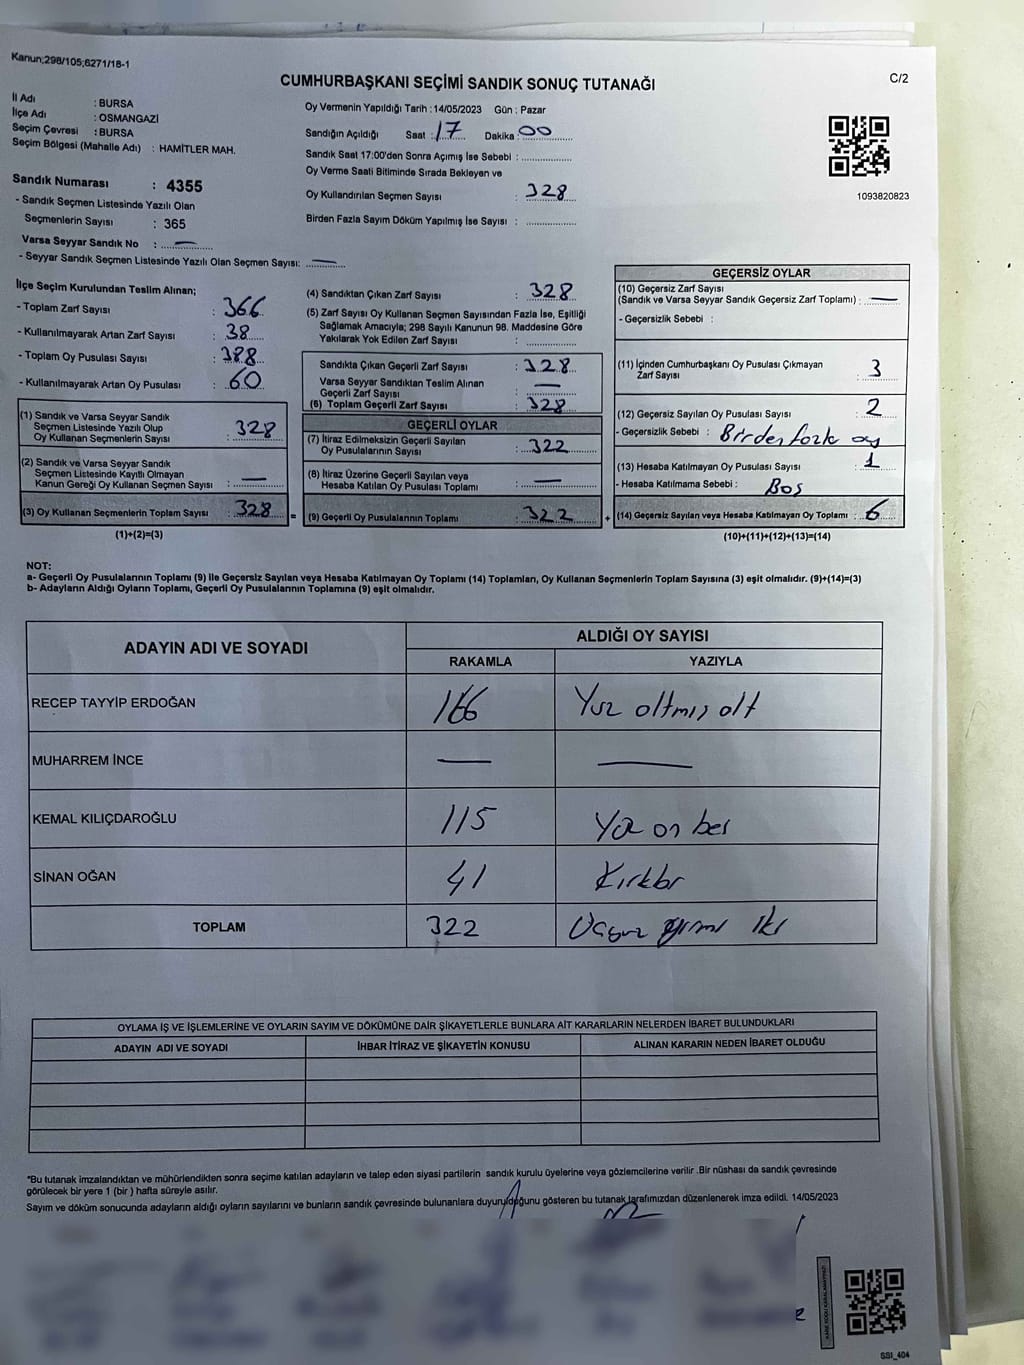 Kanun;298/105;6271/18-1
CUMHURBAŞKANI SEÇİMİ SANDIK SONUÇ TUTANAĞI
C/2
İl Adı : BURSA
İlçe Adı : OSMANGAZİ
Seçim Çevresi : BURSA
Seçim Bölgesi (Mahalle Adı) : HAMİTLER MAH.
Sandık Numarası : 4355
- Sandık Seçmen Listesinde Yazılı Olan
Seçmenlerin Sayısı : 365
Varsa Seyyar Sandık No : —
- Seyyar Sandık Seçmen Listesinde Yazılı Olan Seçmen Sayısı: —
Oy Vermenin Yapıldığı Tarih : 14/05/2023 Gün : Pazar
Sandığın Açıldığı Saat : 17 Dakika : 00
Sandık Saat 17:00'den Sonra Açımış İse Sebebi :
Oy Verme Saati Bitiminde Sırada Bekleyen ve
Oy Kullandırılan Seçmen Sayısı : 328
Birden Fazla Sayım Döküm Yapılmış İse Sayısı :
1093820823
İlçe Seçim Kurulundan Teslim Alınan;
- Toplam Zarf Sayısı : 366
- Kullanılmayarak Artan Zarf Sayısı : 38
- Toplam Oy Pusulası Sayısı : 388
- Kullanılmayarak Artan Oy Pusulası : 60
(1) Sandık ve Varsa Seyyar Sandık
Seçmen Listesinde Yazılı Olup
Oy Kullanan Seçmenlerin Sayısı : 328
(2) Sandık ve Varsa Seyyar Sandık
Seçmen Listesinde Kayıtlı Olmayan
Kanun Gereği Oy Kullanan Seçmen Sayısı : —
(3) Oy Kullanan Seçmenlerin Toplam Sayısı : 328
(1)+(2)=(3)
(4) Sandıktan Çıkan Zarf Sayısı : 328
(5) Zarf Sayısı Oy Kullanan Seçmen Sayısından Fazla İse, Eşitliği
Sağlamak Amacıyla; 298 Sayılı Kanunun 98. Maddesine Göre
Yakılarak Yok Edilen Zarf Sayısı :
Sandıkta Çıkan Geçerli Zarf Sayısı : 328
Varsa Seyyar Sandıktan Teslim Alınan
Geçerli Zarf Sayısı : —
(6) Toplam Geçerli Zarf Sayısı : 328
=
GEÇERLİ OYLAR
(7) İtiraz Edilmeksizin Geçerli Sayılan
Oy Pusulalarının Sayısı : 322
(8) İtiraz Üzerine Geçerli Sayılan veya
Hesaba Katılan Oy Pusulası Toplamı : —
(9) Geçerli Oy Pusulalarının Toplamı : 322
+
GEÇERSİZ OYLAR
(10) Geçersiz Zarf Sayısı
(Sandık ve Varsa Seyyar Sandık Geçersiz Zarf Toplamı) : —
- Geçersizlik Sebebi :
(11) İçinden Cumhurbaşkanı Oy Pusulası Çıkmayan
Zarf Sayısı : 3
(12) Geçersiz Sayılan Oy Pusulası Sayısı : 2
- Geçersizlik Sebebi : Birden fazla oy
(13) Hesaba Katılmayan Oy Pusulası Sayısı : 1
- Hesaba Katılmama Sebebi : Boş
(14) Geçersiz Sayılan veya Hesaba Katılmayan Oy Toplamı : 6
(10)+(11)+(12)+(13)=(14)
NOT:
a- Geçerli Oy Pusulalarının Toplamı (9) ile Geçersiz Sayılan veya Hesaba Katılmayan Oy Toplamı (14) Toplamları, Oy Kullanan Seçmenlerin Toplam Sayısına (3) eşit olmalıdır. (9)+(14)=(3)
b- Adayların Aldığı Oyların Toplamı, Geçerli Oy Pusulalarının Toplamına (9) eşit olmalıdır.
ADAYIN ADI VE SOYADI
ALDIĞI OY SAYISI
RAKAMLA YAZIYLA
RECEP TAYYİP ERDOĞAN 166 Yüz altmış altı
MUHARREM İNCE — —
KEMAL KILIÇDAROĞLU 115 Yüz on beş
SİNAN OĞAN 41 Kırkbir
TOPLAM 322 Üçyüz yirmi iki
OYLAMA İŞ VE İŞLEMLERİNE VE OYLARIN SAYIM VE DÖKÜMÜNE DAİR ŞİKAYETLERLE BUNLARA AİT KARARLARIN NELERDEN İBARET BULUNDUKLARI
ADAYIN ADI VE SOYADI İHBAR İTİRAZ VE ŞİKAYETİN KONUSU ALINAN KARARIN NEDEN İBARET OLDUĞU
*Bu tutanak imzalandıktan ve mühürlendikten sonra seçime katılan adayların ve talep eden siyasi partilerin sandık kurulu üyelerine veya gözlemcilerine verilir .Bir nüshası da sandık çevresinde
görülecek bir yere 1 (bir ) hafta süreyle asılır.
Sayım ve döküm sonucunda adayların aldığı oyların sayılarını ve bunların sandık çevresinde bulunanlara duyurulduğunu gösteren bu tutanak tarafımızdan düzenlenerek imza edildi. 14/05/2023
SSI_404